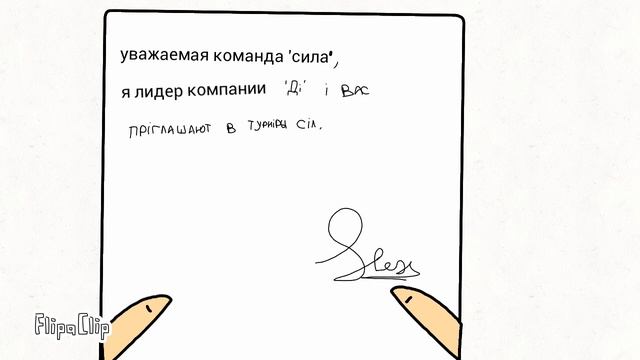 уважаемая команда 'сила',
я лидер компании 'Ді' і вас
пріглашают в турніры сіл.
FlipaClip